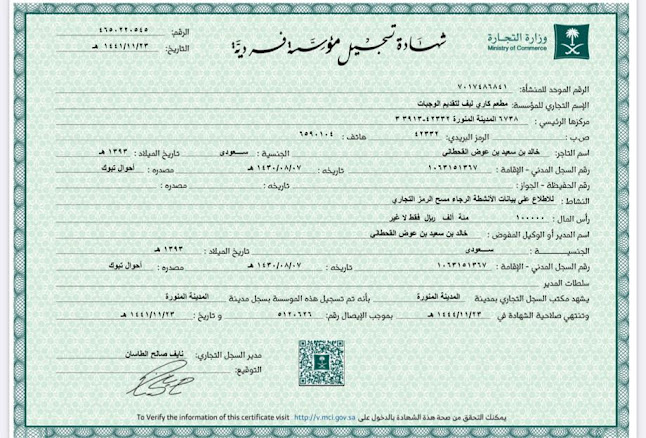 وزارة التجارة
Ministry of Commerce
شهادة تسجيل مؤسسة فردية
الرقم: ٤٦٥٠٢٢٠٥٤٥
التاريخ: ١٤٤١/١١/٢٣ هـ
الرقم الموحد للمنشأة: ٧٠١٧٤٨٦٨٤١
الإسم التجاري للمؤسسة: مطعم كاري ليف لتقديم الوجبات
مركزها الرئيسي: ٦٧٣٨ المدينة المنورة ٤٢٣٣٢-٣٩١٣ ٣
ص.ب: الرمز البريدي: ٤٢٣٣٢ هاتف: ٦٥٩٠١٠٤
اسم التاجر: خالد بن سعيد بن عوض القحطاني الجنسية: سعودي تاريخ الميلاد: ١٣٩٣ هـ
رقم السجل المدني - الإقامة: ١٠٦٣١٥١٣٦٧ تاريخه: ١٤٣٠/٠٨/٠٧ هـ مصدره: أحوال تبوك
رقم الحفيظة - الجواز: تاريخه: مصدره:
النشاط: للاطلاع على بيانات الأنشطة الرجاء مسح الرمز التجاري
رأس المال: ١٠٠٠٠٠ مئة ألف ريال فقط لا غير
اسم المدير أو الوكيل المفوض: خالد بن سعيد بن عوض القحطاني
الجنسيـــة: سعودي تاريخ الميلاد: ١٣٩٣ هـ
رقم السجل المدني - الإقامة: ١٠٦٣١٥١٣٦٧ تاريخه: ١٤٣٠/٠٨/٠٧ هـ مصدره: أحوال تبوك
سلطات المدير
يشهد مكتب السجل التجاري بمدينة المدينة المنورة بأنه تم تسجيل هذه الموسسة بسجل مدينة المدينة المنورة
وتنتهي صلاحية الشهادة في ١٤٤٤/١١/٢٣ هـ بموجب الإيصال رقم: ٥١٢٠٦٢٦ و تاريخ: ١٤٤١/١١/٢٣ هـ
مدير السجل التجاري: نايف صالح الطاسان
التوقيع:
يمكنك التحقق من صحة هذة الشهادة بالدخول على To Verify the information of this certificate visit http://v.mci.gov.sa